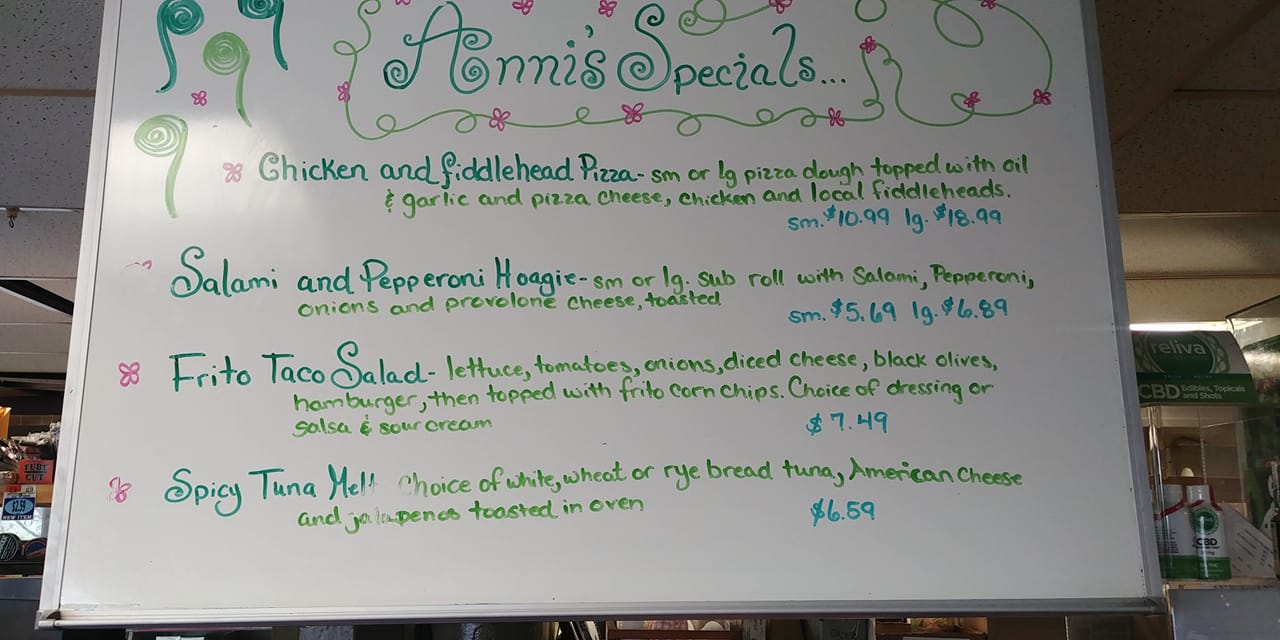 Anni's Specials...
Chicken and fiddlehead Pizza - sm or lg pizza dough topped with oil
& garlic and pizza cheese, chicken and local fiddleheads.
sm. $10.99 lg. $18.99
Salami and Pepperoni Hoagie - sm or lg. sub roll with Salami, Pepperoni,
onions and provolone cheese, toasted
sm. $5.69 lg. $6.89
Frito Taco Salad - lettuce, tomatoes, onions, diced cheese, black olives,
hamburger, then topped with frito corn chips. Choice of dressing or
salsa & sour cream
$7.49
Spicy Tuna Melt Choice of white, wheat or rye bread tuna, American cheese
and jalapenos toasted in oven
$6.59
reliva
CBD Edibles, Topicals
and Shots
CBD
CUT
$2.59
NEW ITEM